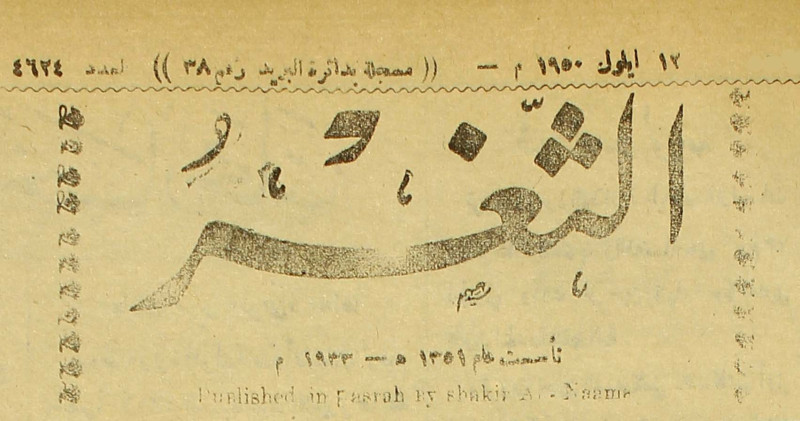 ١٢ ايلول ١٩٥٠ م — (( مسجلة بدائرة البريد رقم ٣٨ )) العدد ٤٦٢٤
الثَّغْرُ
تأسست عام ١٣٥١ ه — ١٩٣٣ م
Published in Basrah By shakir Al-Naama